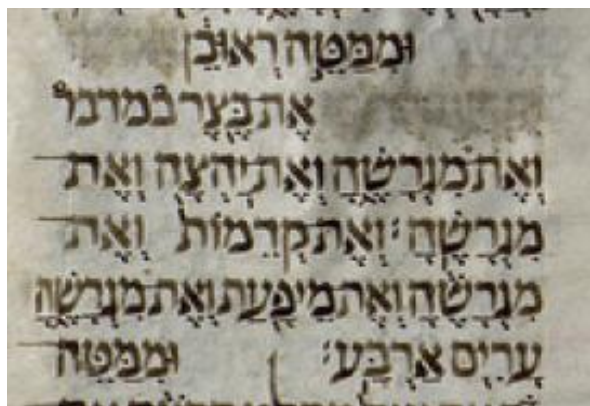 וּמִמַּטֵּה רְאוּבֵן
אֶת בֶּצֶר במדבר
וְאֶת מִגְרָשֶׁהָ וְאֶת יַהְצָה וְאֶת
מִגְרָשֶׁהָ׃ וְאֶת קְדֵמוֹת וְאֶת
מִגְרָשֶׁהָ וְאֶת מֵיפָעַת וְאֶת מִגְרָשֶׁהָ
עָרִים אַרְבַּע׃ וּמִמַּטֵּה